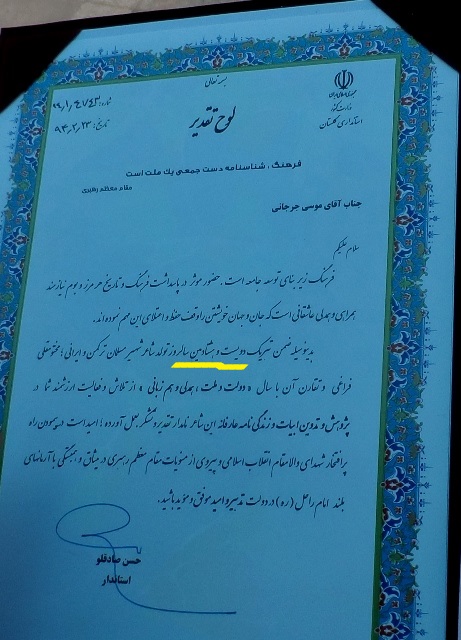 بسمه تعالی
جمهوری اسلامی ایران
وزارت کشور
استانداری گلستان
تاریخ: ۹۴،۲،۲۳
لوح تقدیر
فرهنگ، شناسنامه دست جمعی یک ملت است
مقام معظم رهبری
جناب آقای موسی جرجانی
سلام علیکم
فرهنگ زیر بنای توسعه جامعه است. حضور موثر در پاسداشت فرهنگ و تاریخ هر مرز و بوم نیازمند
همراهی و همدلی عاشقانی است که جان و جهان خویشتن را وقف حفظ و اعتلای این مهم نموده‌اند.
بدینوسیله ضمن تبریک دویست و هشتادمین سالروز تولد شاعر شهیر مسلمان ترکمن و ایرانی؛ مختومقلی
فراغی و تقارن آن با سال «دولت و ملت، همدلی و هم زبانی» از تلاش و فعالیت ارزشمند شما در
پژوهش و تدوین ابیات و زندگی نامه عارفانه این شاعر نامدار تقدیر و تشکر بعمل آورده؛ امید است در پیمودن راه
پر افتخار شهدای والامقام انقلاب اسلامی و پیروی از منویات مقام معظم رهبری در میثاق و همبستگی با آرمانهای
بلند امام راحل (ره) در دولت تدبیر و امید موفق و موید باشید.
حسن صادقلو
استاندار